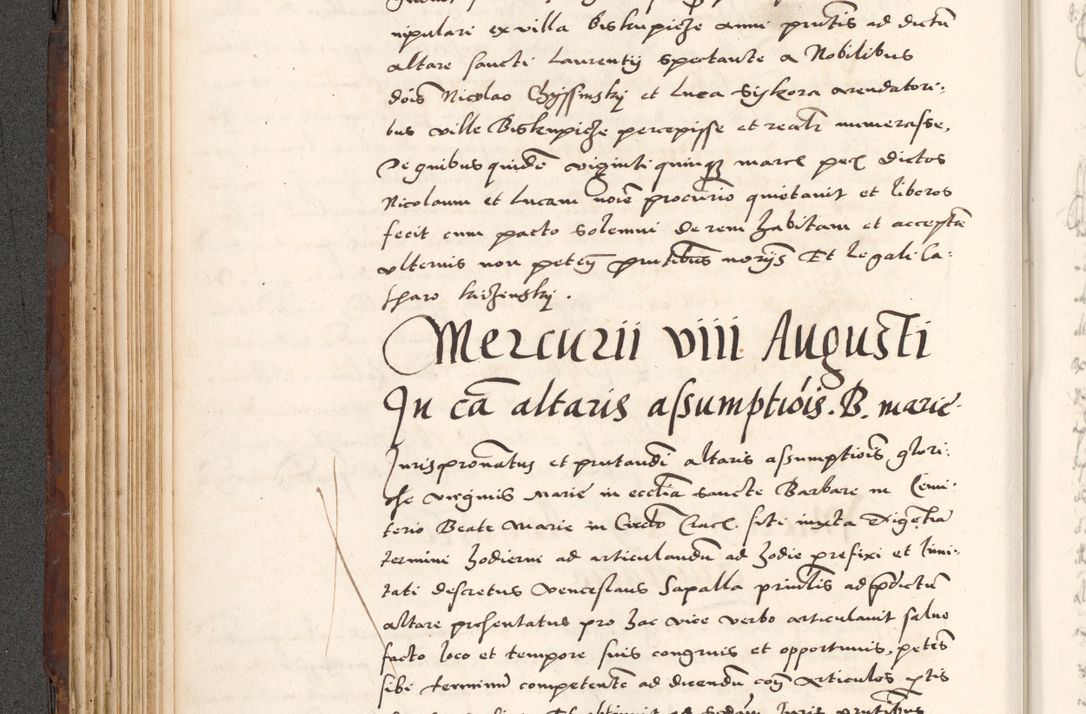 nipulari ex villa Biskupicze anni prntis ad dictu
altare sancti Laurentij spectante a Nobilibus
dois Nicolao et Luca Sykora arendatori-
bus ville Biskupicze percepisse et realr numerasse,
De quibus quide viginti quinq march pecl dictos
Nicolaum et Lucam noie procurio quietauit et liberos
fecit cum pacto solemni de rem habitam et accepta
vlterius non peten Et legali Ca-
tharo
Mercurii viii Augusti
In ca altaris assumptiois . B . marie
Jurispronatus et prntandi altaris assumptiois glori-
ose virginis marie in ecclia sancte Barbare in Cemi-
terio Beate Marie in Circto Cracl siti iuxta Digentia
termini hodierni ad articulandu ad hodie prefixi et limi-
tati discretus Venceslaus Sapalla ad pdictum
altare presentatus pro hac vice verbo articulauit saluo
facto loco et tempore suis congruis et opportunis, petes
sibi terminu competente ad dicendu con articulos ptis